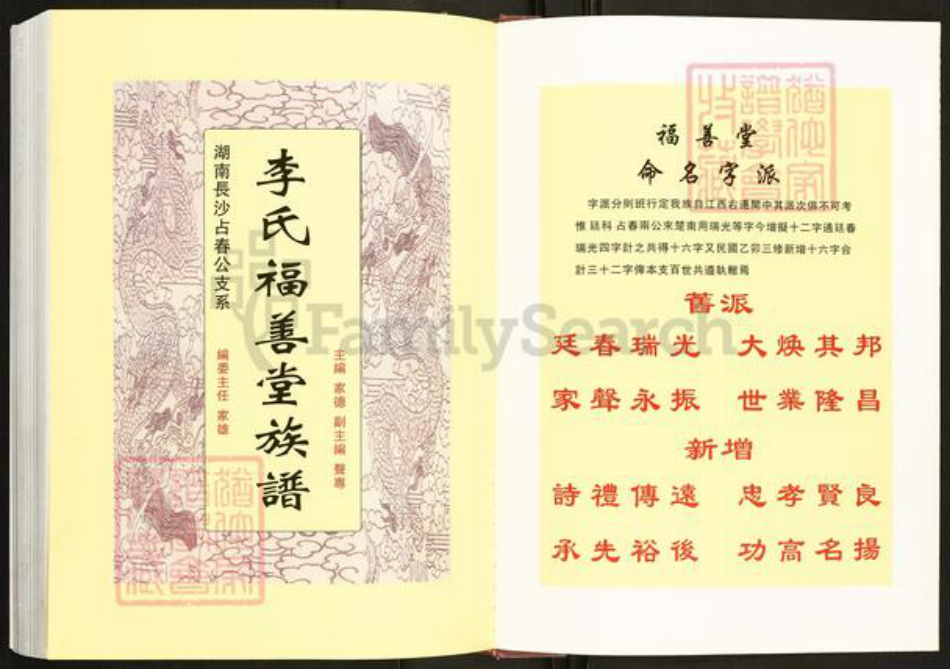 湖南長沙占春公支系
李氏福善堂族譜
主編 家德 副主編 聲專
編委主任 家雄
福善堂
命名字派
字派分則班行定我族自江西右遷閩中其派次俱不可考
惟廷科占春兩公來楚南用瑞光等字今增擬十二字通廷春
瑞光四字計之共得十六字又民國乙卯三修新增十六字合
計三十二字俾本支百世共遵執轍焉
舊派
廷春瑞光 大煥其邦
家聲永振 世業隆昌
新增
詩禮傳遠 忠孝賢良
承先裕後 功高名揚
FamilySearch